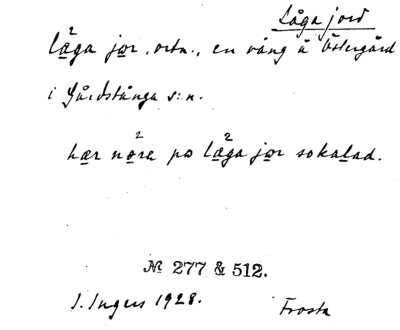 Låga jord
lǻga jor, ortn., en vång å Östergård
i Gårdstånga s:n.
hær nora po låga jor sokalad.
№ 277 & 512.
I. Ingers 1928. Frosta